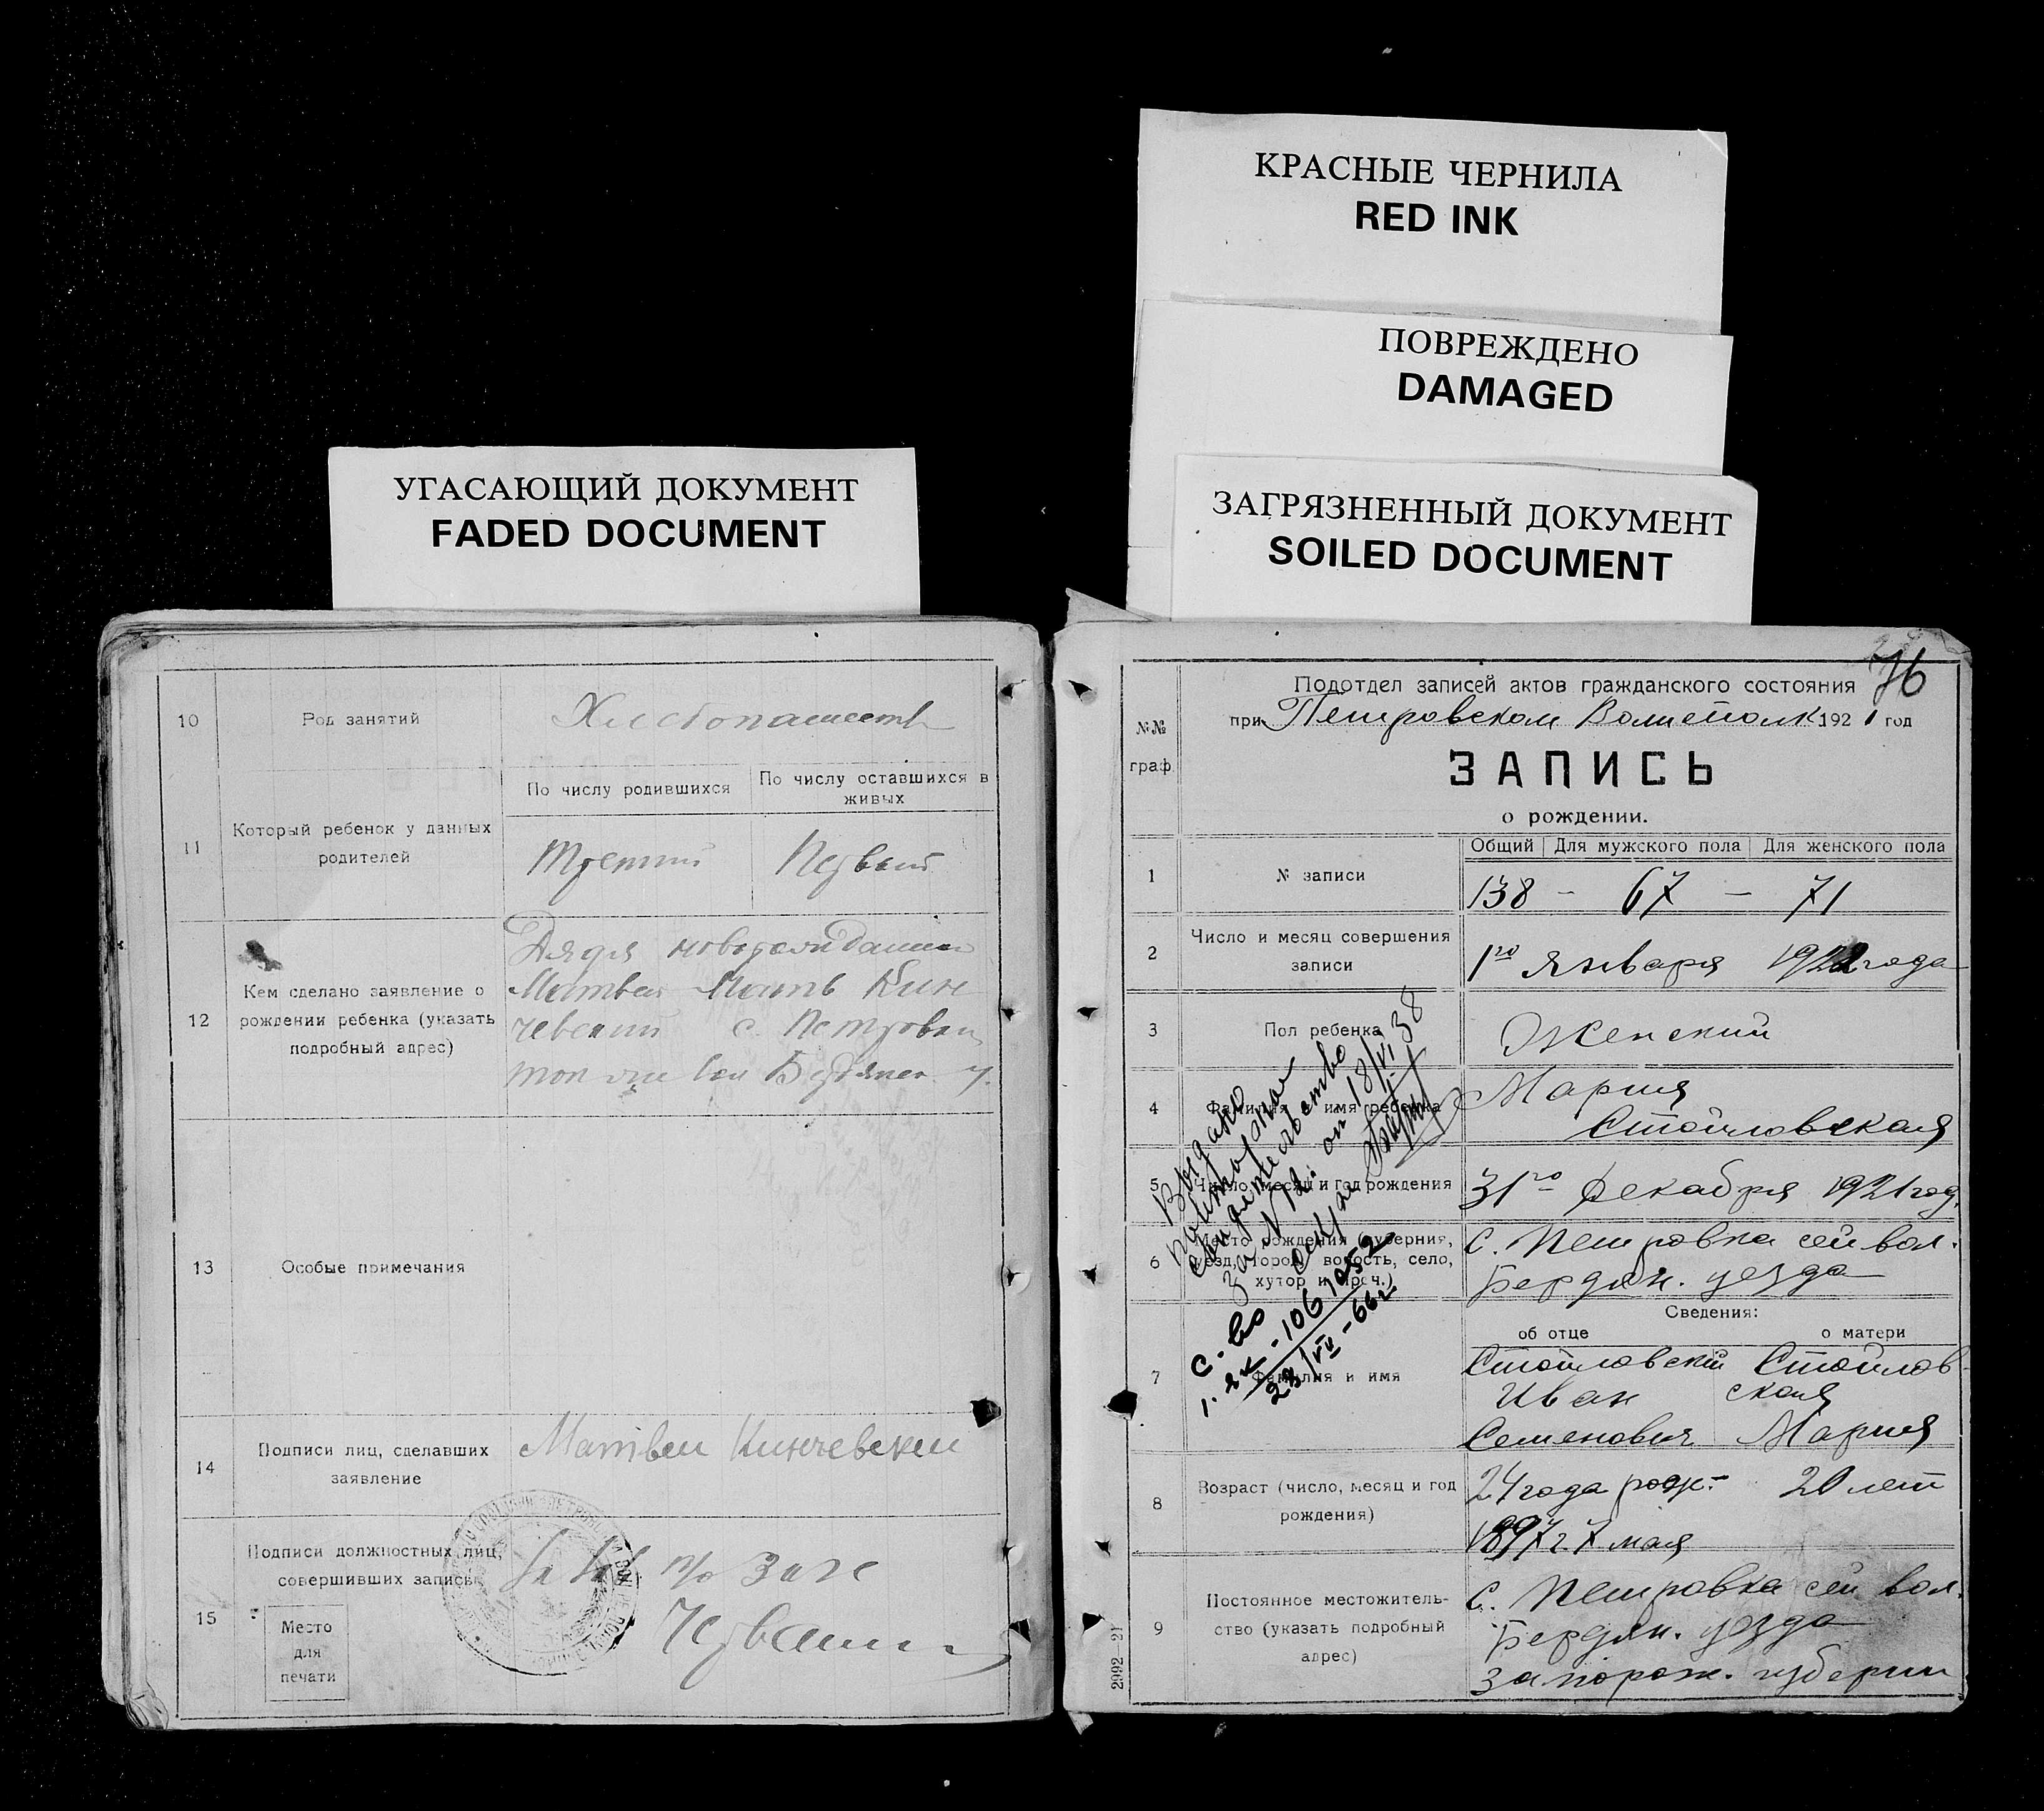 КРАСНЫЕ ЧЕРНИЛА
RED INK
ПОВРЕЖДЕНО
DAMAGED
ЗАГРЯЗНЕННЫЙ ДОКУМЕНТ
SOILED DOCUMENT
УГАСАЮЩИЙ ДОКУМЕНТ
FADED DOCUMENT
10
Род занятий
Хлебопашеств
11
Который ребенок у данных
родителей
По числу родившихся
По числу оставшихся в
живых
Третий
Первый
12
Кем сделано заявление о
рождении ребенка (указать
подробный адрес)
Дядя
Матвей
с. Петровки
13
Особые примечания
14
Подписи лиц, сделавших
заявление
Матвей Кинчевский
15
Подписи должностных лиц,
совершивших запись
Место
для
печати
п/о загс
76
Подотдел записей актов гражданского состояния
при Петровском 1921 год
№№
граф.
ЗАПИСЬ
о рождении.
Общий Для мужского пола Для женского пола
1
№ записи
138 — 67 — 71
2
Число и месяц совершения
записи
1го Января 1922 года
3
Пол ребенка
Женский
4
Фамилия и имя ребенка
Мария
Стойловская
5
Число, месяц и год рождения
31го Декабря 1921 год.
6
Место рождения (губерния,
уезд, город, волость, село,
хутор и проч.)
с. Петровка сей вол.
Бердян. уезда
Сведения:
об отце
о матери
7
Фамилия и имя
Стойловский
Иван
Семенович
Стойлов-
ская
Мария
8
Возраст (число, месяц и год
рождения)
24 года рож.-
1897 г. 7 мая
20 лет
9
Постоянное местожитель-
ство (указать подробный
адрес)
с. Петровка сей вол.
Бердян. уезда
Запорож. губернии
Выдано
повторное
свидетельство
за №12. от 18/VI 38
с-во
1061052
23/VII-66г.
2992 21